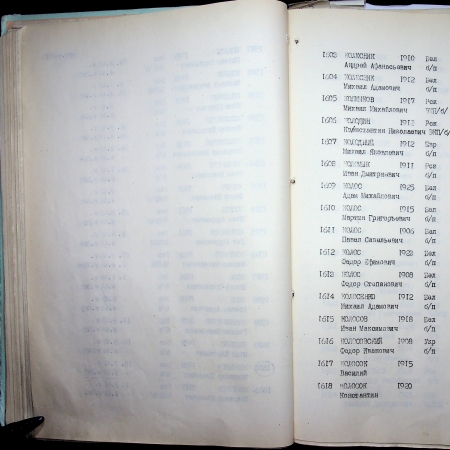 1603 КОЛЕСНИК 1910 Бел
Андрей Афанасьевич б/п
1604 КОЛЕСНИК 1912 Бел
Михаил Адамович б/п
1605 1917 Рос
Михаил Михайлович
1606 КОЛОДИН 1913 Рос
Константин Николаевич ВКП/б/
1607 КОЛОДНЫЙ 1912 Укр
Михаил Яковлевич б/п
1608 1911 Рос
Иван Дмитриевич б/п
1609 КОЛОС 1925 Бел
Адам Михайлович б/п
1610 КОЛОС 1915 Бел
Мартин Григорьевич б/п
1611 КОЛОС 1906 Бел
Павел Савельевич б/п
1612 КОЛОС 1923 Бел
Федор Ефимович б/п
1613 КОЛОС 1908 Бел
Федор Степанович б/п
1614 КОЛОСЕНКО 1912 Бел
Михаил Адамович б/п
1615 КОЛОСОВ 1918 Бел
Иван Максимович б/п
1616 КОЛОСОВСКИЙ 1908 Укр
Федор Иванович б/п
1617 КОЛОСОК 1915
Василий
1618 КОЛОСОК 1920
Константин